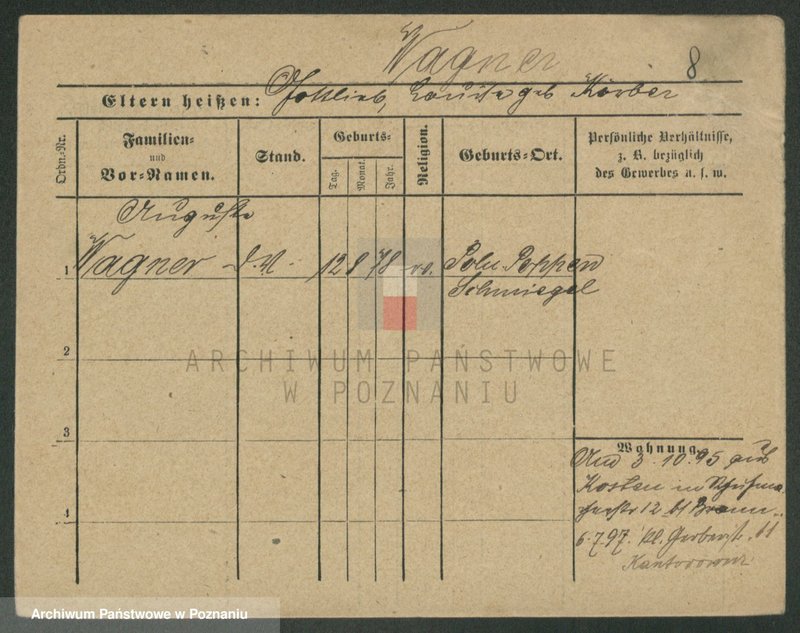 Wagner
8
Eltern heißen: Gottlieb, Louise geb Körber
Ordn.-Nr.
Familien-
und
Vor-Namen.
Stand.
Geburts-
Tag.
Monat.
Jahr.
Religion.
Geburts-Ort.
Persönliche Verhältnisse,
z. B. bezüglich
des Gewerbes u. s. w.
Auguste
1 Wagner d. M. 12 8 78 ev. Poln. Poppen
Schmiegel
2
3
4
ARCHIWUM PAŃSTWOWE
W POZNANIU
Wohnung.
3.10.95 aus
Kosten in
12 bl
6.7.97. Kl. Gerberstr. 11
Kantorowicz
Archiwum Państwowe w Poznaniu